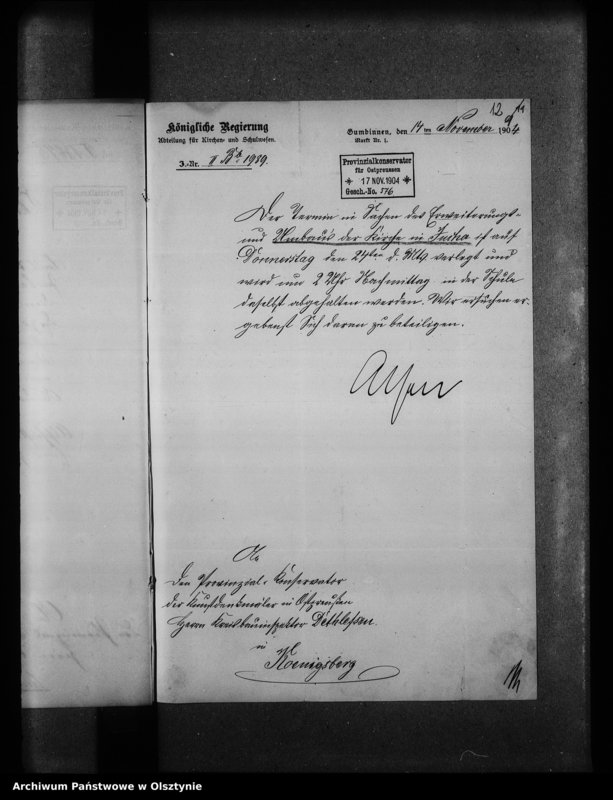 12
Königliche Regierung
Abteilung für Kirchen- und Schulwesen.
J.-Nr. II 1989.
Gumbinnen, den 14ten November 1904
Markt Nr. 1.
Provinzialkonservator
für Ostpreussen
17 NOV. 1904
Gesch.-No. 576
Der Termin in Sachen des Erweiterungs-
und Umbaus der Kirche in ist auf
Donnerstag den 24ten d. Mts verlegt und
wird um 2 Uhr Nachmittag in der Schule
daselbst abgehalten werden. Wir ersuchen er-
gebenst Sich daran zu beteiligen.
An
den Provinzial-Konservator
der Kunstdenkmäler in Ostpreußen
Herrn Kreisbauinspektor Dethlefsen.
in
Koenigsberg
Archiwum Państwowe w Olsztynie